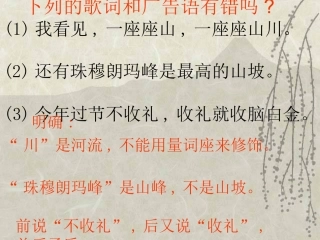 下列的歌词和广告语有错吗?
(1) 我看见,一座座山,一座座山川。
(2) 还有珠穆朗玛峰是最高的山坡。
(3) 今年过节不收礼,收礼就收脑白金。
明确:
“川”是河流,不能用量词座来修饰。
“珠穆朗玛峰”是山峰,不是山坡。
前说“不收礼”,后又说“收礼”,